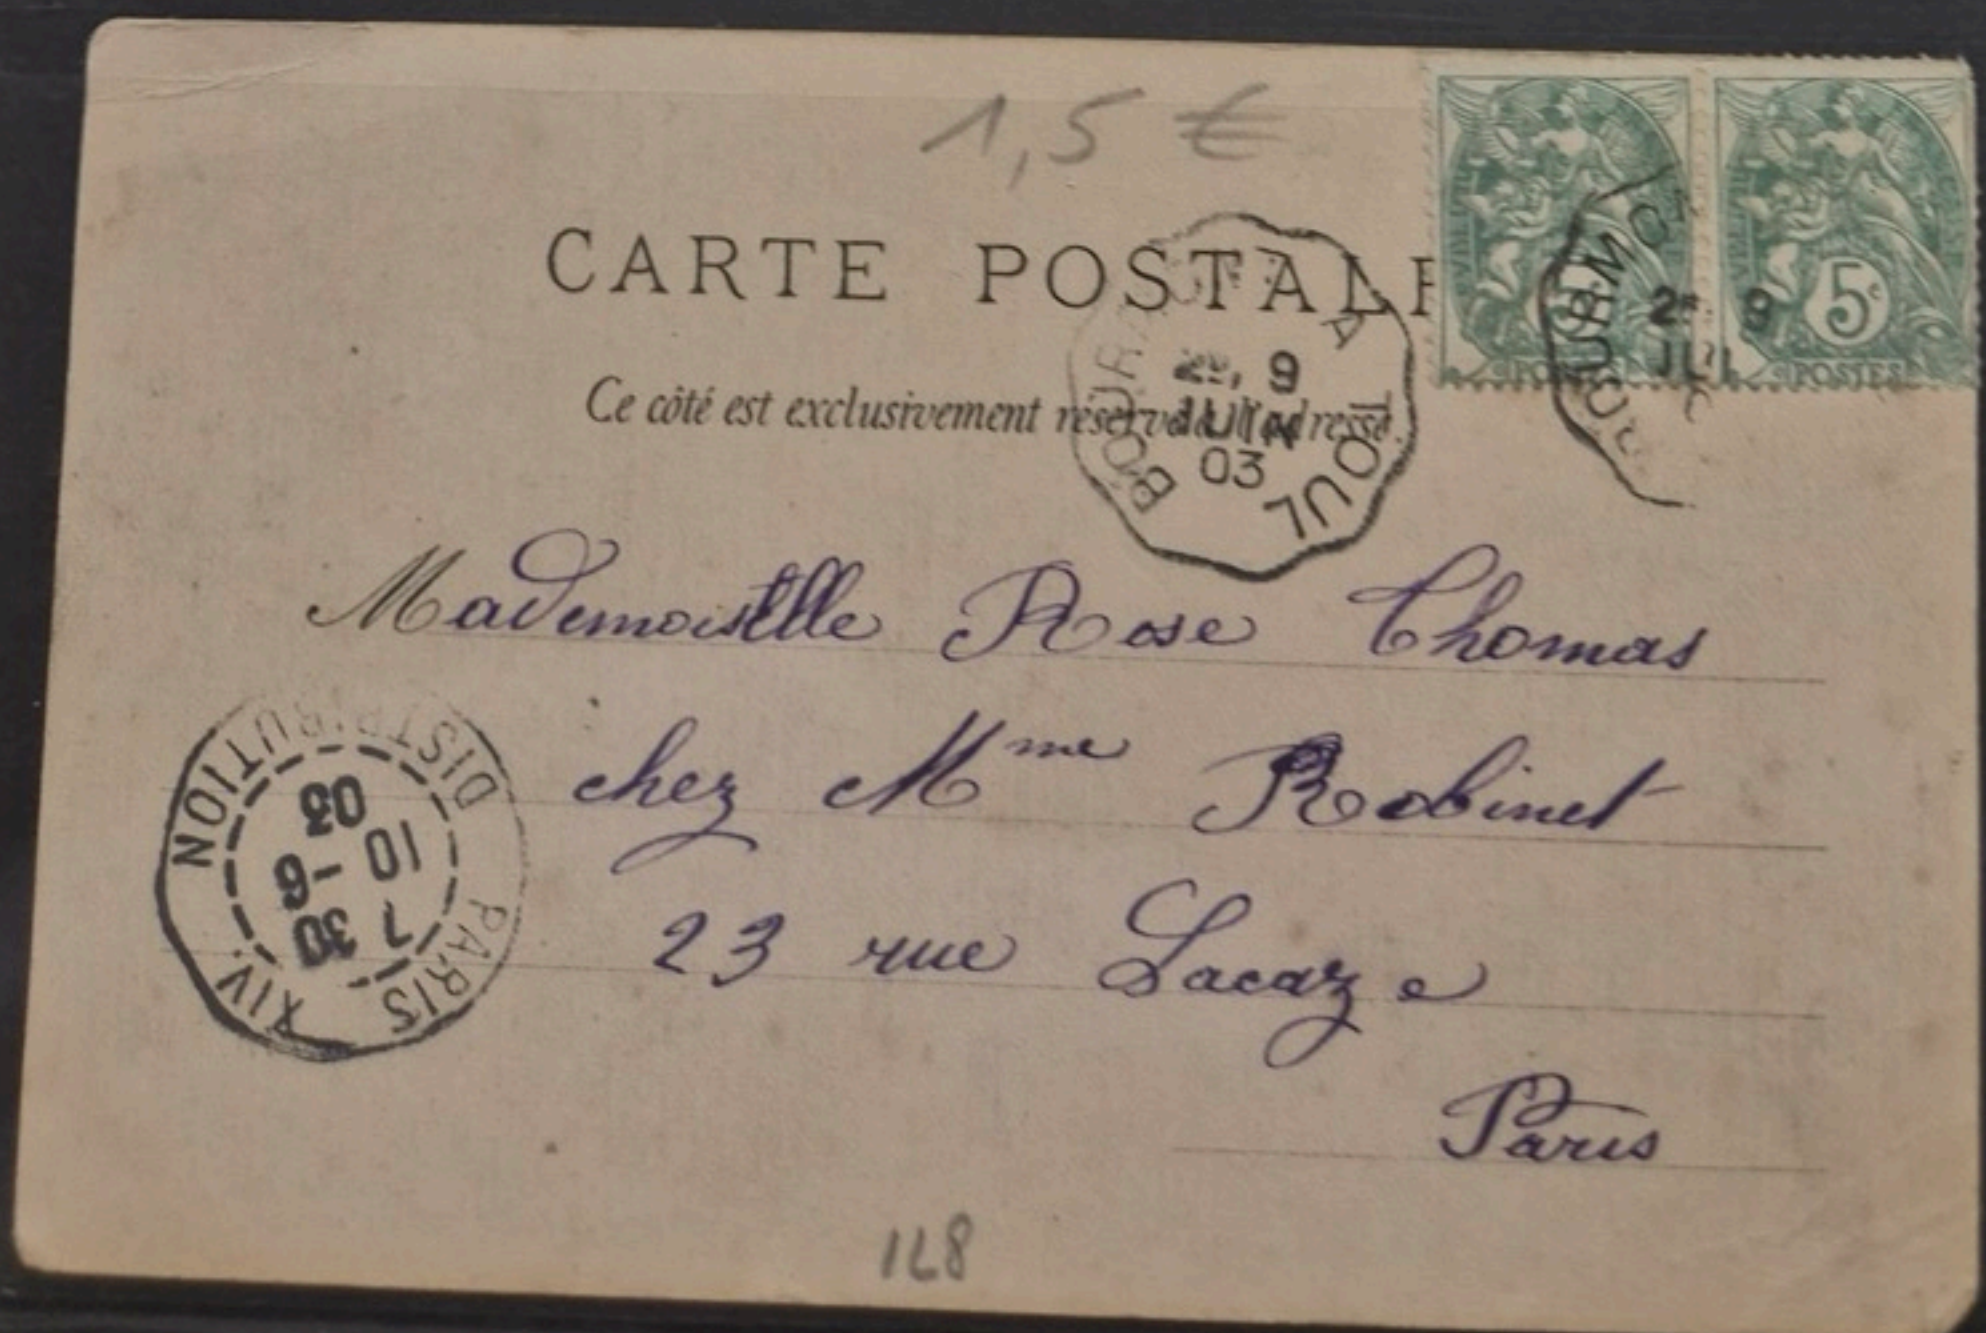 1,5 €
CARTE POSTALE
Ce côté est exclusivement réservé à l'adresse.
5c
POSTES
POSTES
2e 9
JUIN
03
A
TOUL
2e 9
Mademoiselle Rose Thomas
chez Mme Robinet
23 rue Lacaze
Paris
PARIS XIV.
DISTRIBUTION
7 30
10 - 6
03
128